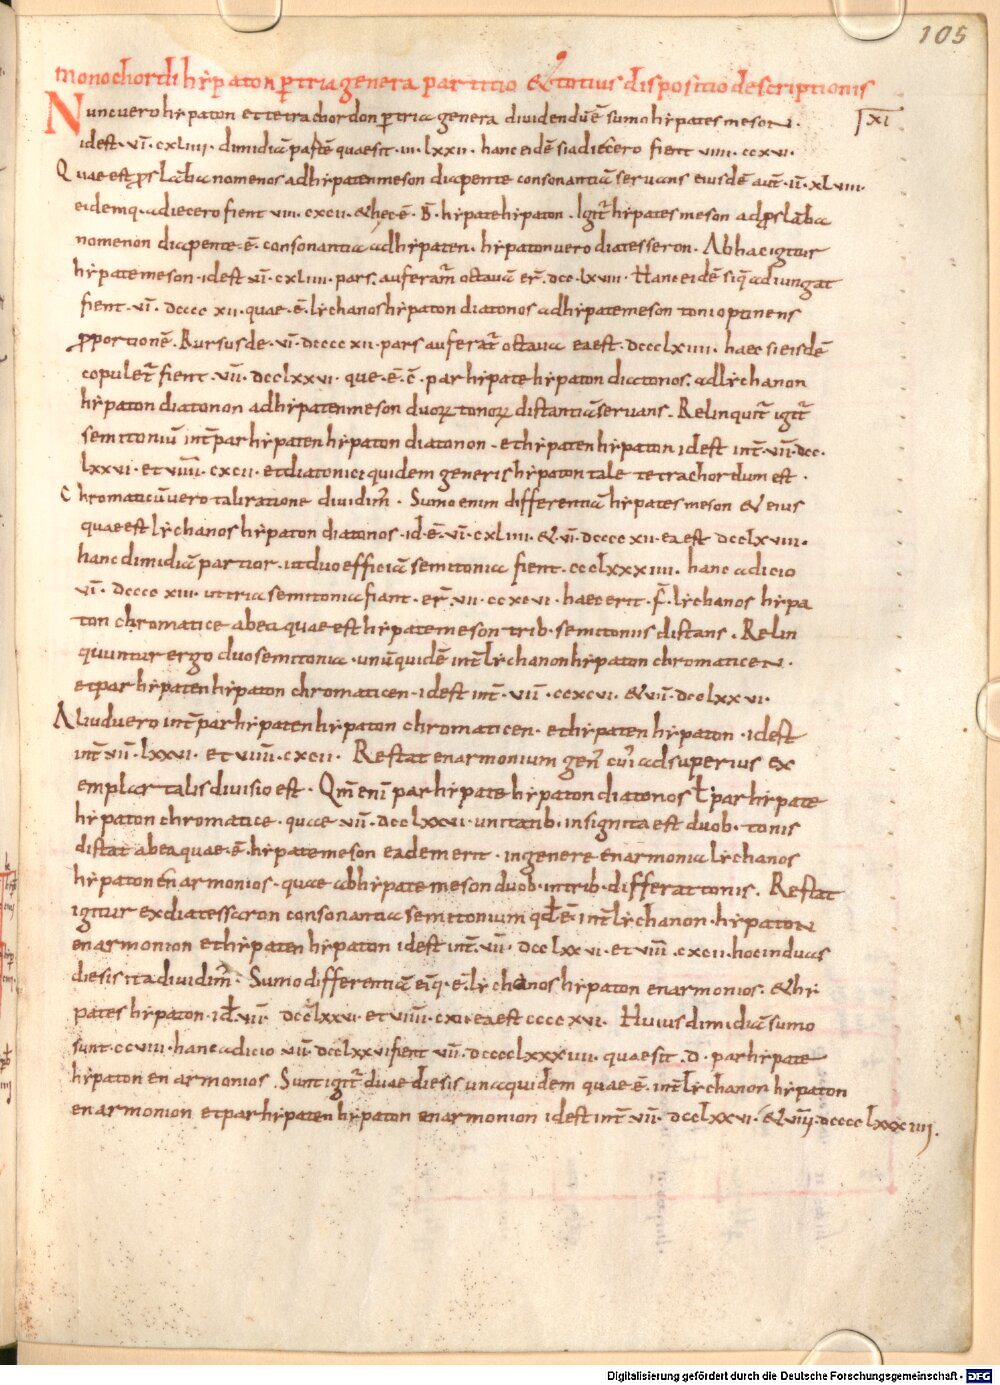 105
monochordi hypaton p̄ tria genera partitio & totius dispositio descriptionis
Nunc vero hypaton et tetrachordon p̄ tria genera dividendū ē sumo hypates meson.
XI
idest. vī. cxliiii. dimidiā partē quae sit. iii. lxxii. hanc eidē si adiecero fient viiii. ccxvi.
Quae est proslābanomenos ad hypaten meson diapente consonantiā servans eiusdē aut. iī. xlviii.
eidemq. adiecero fient viii. cxcii. & hęc ē. B. hypate hypaton. Igit̄ hypates meson ad proslāba
nomenon diapente. ē. consonantia ad hypaten. hypaton vero diatesseron. Ab hac igitur
hypate meson. idest vī. cxliiii. pars. auferam̄ octavā er̄. dcc. lxviii. Hanc eidē siq̄ adiungat
fient. vī. dcccc xii. quae. ē. lychanos hypaton diatonos ad hypate meson toni optinens
proportionē. Rursus de. vī. dcccc xii. pars auferat̄ octava ea est. dccclxiiii. haec si eisdē
copulet̄ fient. vīī. dcclxxvi. que. ē. c̄. parhypate hypaton diatonos. ad lychanon
hypaton diatonon ad hypaten meson duorum tonorum distantiā servans. Relinquit̄ igit̄
semitoniū int̄ parhypaten hypaton diatonon. et hypaten hypaton idest int̄. vīī. dcc.
lxxvi. et viīīī. cxcii. et diatonici quidem generis hypaton tale tetrachordum est.
Chromaticū vero tali ratione dividim̄. Sumo enim differentiā hypates meson & eius
quae est lychanos hypaton diatonos. id. ē. vī. cxliiii. & vī. dcccc xii. ea est dcclxviii.
hanc dimidiā partior. ut duo efficiā semitonia fient. ccclxxxiiii. hanc adicio
vī. dcccc xiii. ut tria semitonia fiant. er̄. vii. ccxcvi. haec erit. F. lychanos hypa
ton chromatice abea quae est hypate meson trib. semitoniis distans. Relin
quuntur ergo duo semitonia. unū quidē int̄ lychanon hypaton chromaticen.
et parhypaten hypaton chromaticen. idest int̄. vīī. ccxcvi. & vīī. dcclxxvi.
Aliud vero int̄ parhypaten hypaton chromaticen. et hypaten hypaton. idest
int̄ vīī. lxxvi. et viīīī. cxcii. Restat enarmonium gen̄ cuī ad superius ex
emplar talis divisio est. Qm̄ eni̅ parhypate hypaton diatonos t̄ parhypate
hypaton chromatice. quae vīī. dcclxxvi. unitatib. insignita est duob. tonis
distat abea quae. ē. hypate meson eadem erit. in genere enarmonia lychanos
hypaton enarmonios. quae ab hypate meson duob. intrib. differat tonis. Restat
igitur ex diatessaron consonantia semitonium qd̄ ē int̄ lychanon. hypaton
enarmonion et hypaten hypaton idest int̄. vīī. dcclxxvi. et viīīī. cxcii. hoc in duas
diesis ita dividim̄. Sumo differentiā eiq. ē. lychanos hypaton enarmonios. & hy
pates hypaton. id̄. vii. dcclxxvi et viīīī. cxcii ea est cccc xvi. Huius dimidiā sumo
sunt. ccviii. hanc adicio vīī. dcclxxvi fient vīī. dcccclxxxiiii. quae sit. D. parhypate
hypaton enarmonios. Sunt igit̄ duae diesis una quidem quae. ē. int̄ lychanon hypaton
enarmonion et parhypaten hypaton enarmonion idest int̄. vīī. dcclxxvi. & vīīī. dcccclxxxiiii.
Digitalisierung gefördert durch die Deutsche Forschungsgemeinschaft - DFG